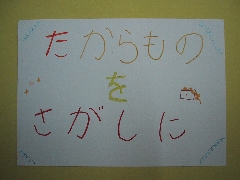 たからもの
を
さがしに